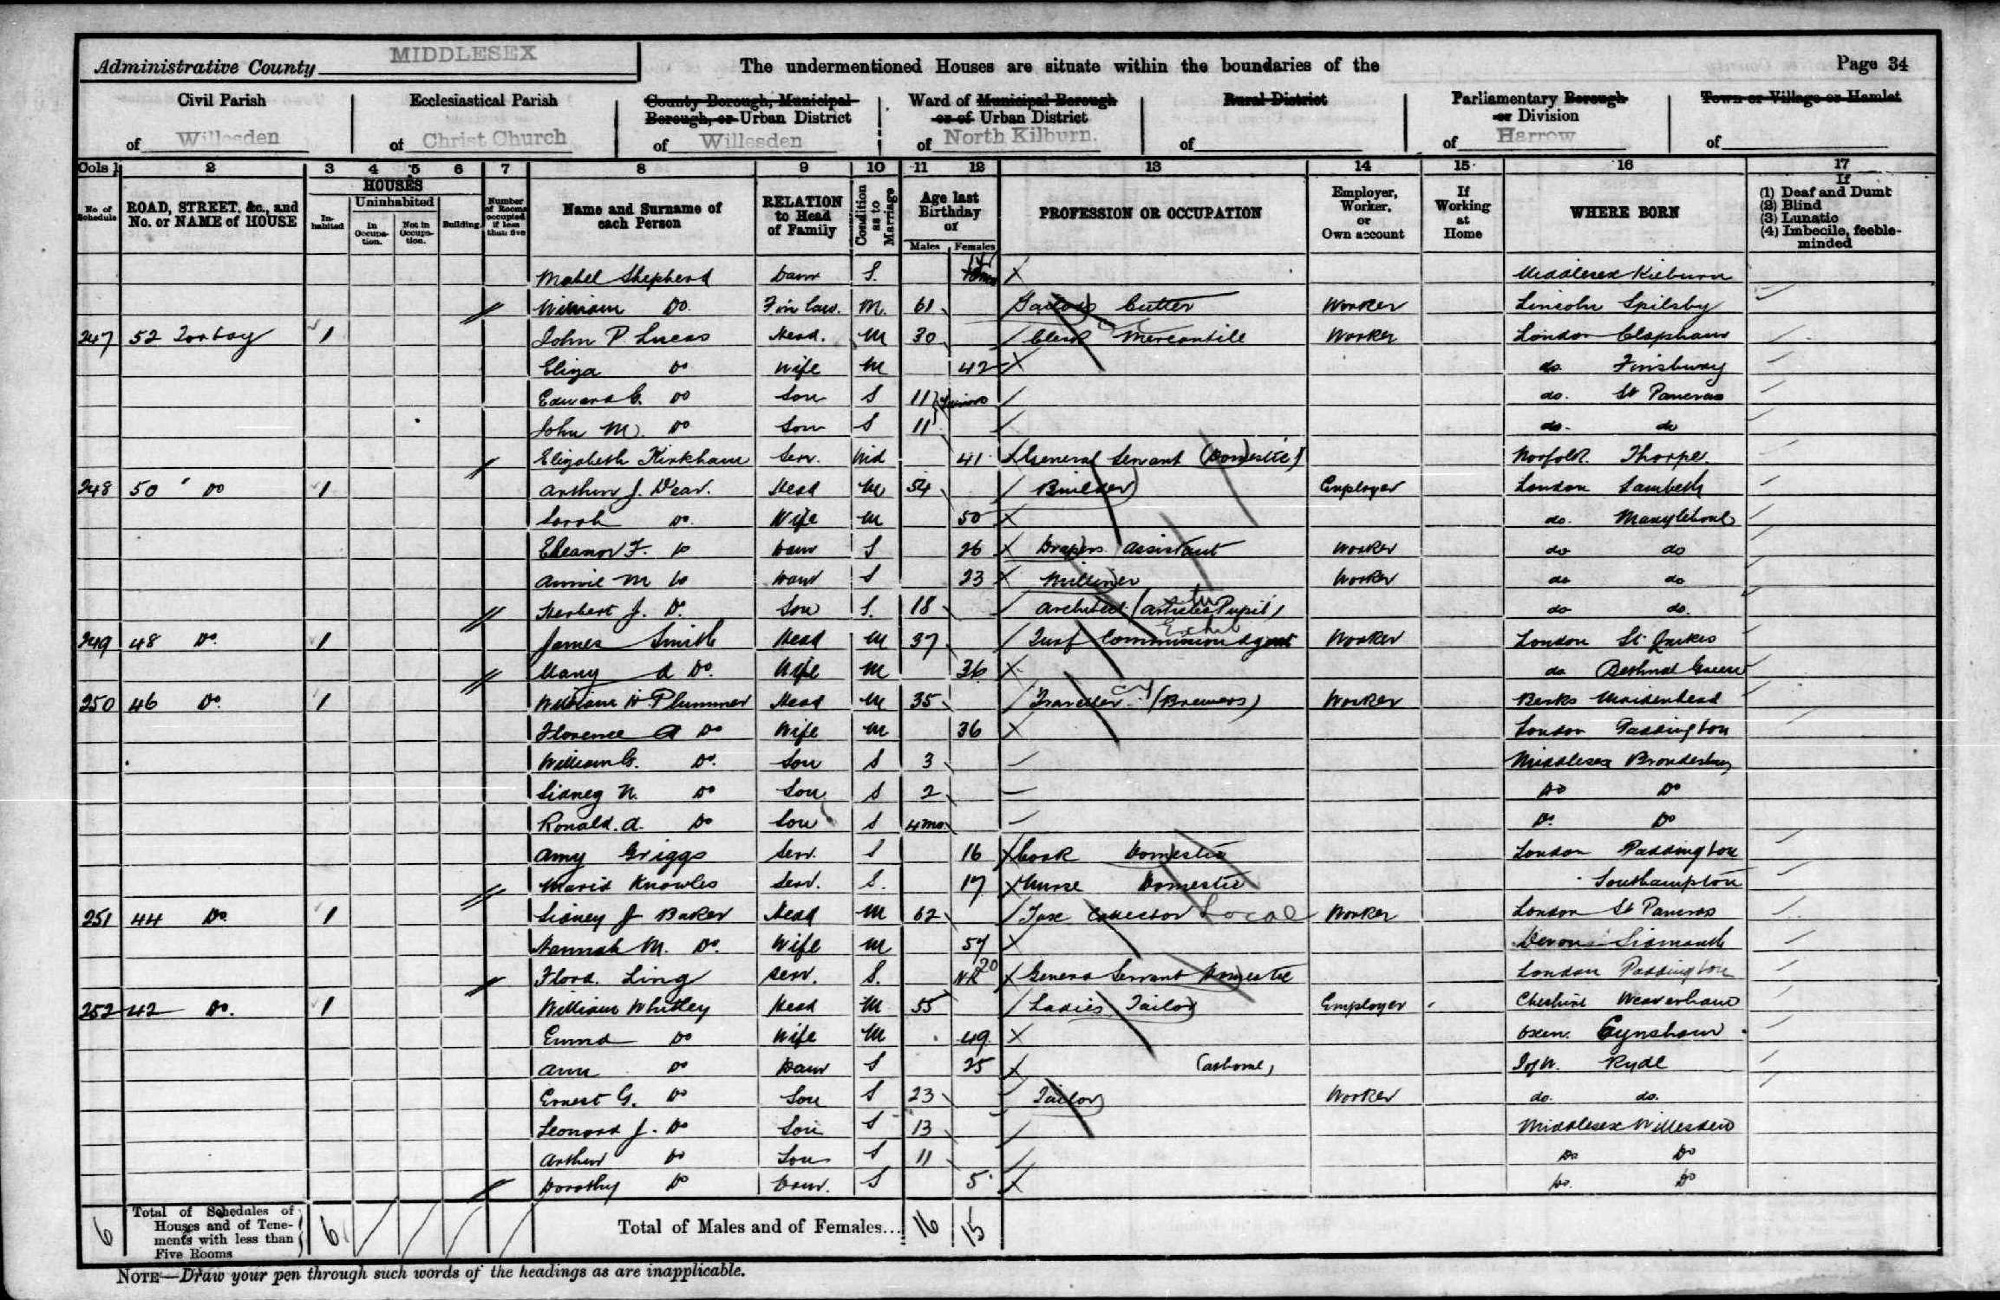 Administrative County MIDDLESEX
The undermentioned Houses are situate within the boundaries of the
Page 34
Civil Parish of Willesden
Ecclesiastical Parish of Christ Church
County Borough, Municipal Borough, or Urban District of Willesden
Ward of Municipal Borough or of Urban District of North Kilburn.
Rural District of
Parliamentary Borough or Division of Harrow
Town or Village or Hamlet of
Cols 1 2 3 4 5 6 7 8 9 10 11 12 13 14 15 16 17
No. of Schedule
ROAD, STREET, &c., and No. or NAME of HOUSE
HOUSES
Inhabited
Uninhabited
In Occupation.
Not in Occupation.
Building
Number of Rooms occupied if less than five
Name and Surname of each Person
RELATION to Head of Family
Condition as to Marriage
Age last Birthday of
Males Females
PROFESSION OR OCCUPATION
Employer, Worker, or Own account
If Working at Home
WHERE BORN
If
(1) Deaf and Dumb
(2) Blind
(3) Lunatic
(4) Imbecile, feeble-minded
Mabel Shepherd Daur S. Middlesex Kilburn
William Do. F in law. M. 61 Tailors Cutter Worker Lincoln Spilsby
247 52 Torbay 1 John P Lucas Head. M 30 Clerk Mercantile Worker London Clapham
Eliza Do Wife M 42 do Finsbury
Edward G. Do Son S 11 Twins do. St Pancras
John M. Do Son S 11 do. do
Elizabeth Kirkham Serv. Wid 41 General Servant (Domestic) Norfolk Thorpe.
248 50 Do 1 Arthur J. Dear. Head M 54 Builder Employer London Lambeth
Sarah Do. Wife M 50 do. Marylebone
Eleanor F. Do Daur S 26 Drapers Assistant Worker do do
Annie M Do Daur S 23 Milliner Worker do do
Herbert J. Do. Son S. 18 Architect (Articled Pupil) do do.
249 48 Do. 1 James Smith Head M 37 Turf Commission Agent Worker London St Lukes
Mary A Do. Wife M 36 do Bethnal Green
250 46 Do. 1 William H Plummer Head M 35 Traveller (Brewers) Worker Berks Maidenhead
Florence A Do Wife M 36 London Paddington
William G. Do. Son S 3 Middlesex Brondesbury
Sidney N. Do Son S 2 Do Do
Ronald. A. Do Son S 4mo Do. Do
Amy Griggs Serv. S 16 Cook Domestic London Paddington
Maria Knowles Serv. S. 17 Nurse Domestic Southampton
251 44 Do. 1 Sidney J Baker Head M 62 Tax Collector Local Worker London St Pancras
Hannah M. Do. Wife M 57 Devon Sidmouth
Flora. Ling Serv. S. NK 20 General Servant Domestic London Paddington
252 42 Do. 1 William Whitley Head M 55 Ladies Tailor Employer Cheshire Weaverham
Emma Do Wife M 49 Oxen. Eynsham
Ann Do Daur S 25 (at home) I of W. Ryde
Ernest G. Do Son S 23 Tailor Worker do. do.
Leonard J. Do Son S 13 Middlesex Willesden
Arthur Do Son S 11 Do Do
Dorothy Do Daur. S 5 Do. Do
6 Total of Schedules of Houses and of Tenements with less than Five Rooms 6 Total of Males and of Females... 16 15
NOTE—Draw your pen through such words of the headings as are inapplicable.